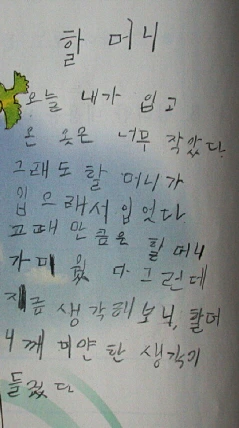 할 머니
오늘 내가 입고
온 옷은 너무 작았다.
그래도 할 머니가
입 으래서 입었다
그때 만 큼은 할 머니
가 미 웠 다 그런데
지금 생각해 보니, 할머
니 께 미안 한 생각이
들었 다